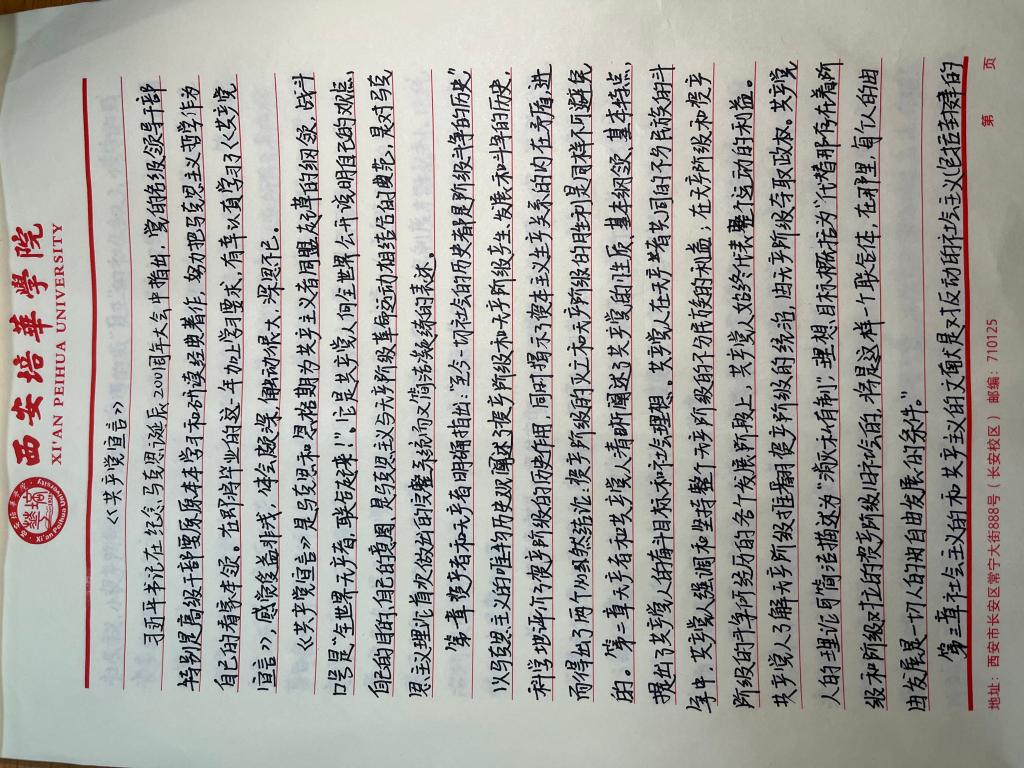 西安培華學院
XI'AN PEIHUA UNIVERSITY
《共产党宣言》
习近平书记在纪念马克思诞辰200周年大会中指出，党的各级领导干部
特别是高级干部要原原本本学习和研读经典著作，努力把马克思主义哲学作为
自己的看家本领。在即将毕业的这一年加上学习要求，有幸认真学习了《共产党
宣言》，感觉受益非浅，体会颇深，触动很大，深思不已。
《共产党宣言》是马克思和恩格斯为共产主义者同盟起草的纲领，战斗
口号是"全世界无产者，联合起来！"。它是共产党人向全世界公开说明自己的观点，
自己的目的，自己的意图，是马克思主义与无产阶级革命运动相结合的典范，是对马克
思主义理论首次做出的完整系统而又简洁凝练的表述。
第一章资产者和无产者明确指出："至今一切社会的历史都是阶级斗争的历史"
以马克思主义的唯物历史观阐述了资产阶级和无产阶级产生、发展和斗争的历史，
科学地评价了资产阶级的历史作用，同时揭示了资本主义生产关系的内在矛盾，进
而得出了两个必然结论：资产阶级的灭亡和无产阶级的胜利是同样不可避免
的。第二章无产者和共产党人清晰阐述了共产党的性质、基本纲领、基本特点，
提出了共产党人的奋斗目标和社会理想。共产党人在无产者共同的不分民族的斗
争中，共产党人强调和坚持整个无产阶级的不分民族的利益；在无产阶级和资产
阶级的斗争所经历的各个发展阶段上，共产党人始终代表整个运动的利益。
共产党人了解无产阶级推翻资产阶级的统治，由无产阶级夺取政权。共产党
人的理论可简洁描述为"消灭私有制"理想目标概括为"代替那存在着阶
级和阶级对立的资产阶级旧社会的，将是这样一个联合体，在那里，每个人的自
由发展是一切人的自由发展的条件。"
第三章社会主义的和共产主义的文献是对反动的社会主义（包括封建的
第 页
地址：西安市长安区常宁大街888号（长安校区） 邮编：710125